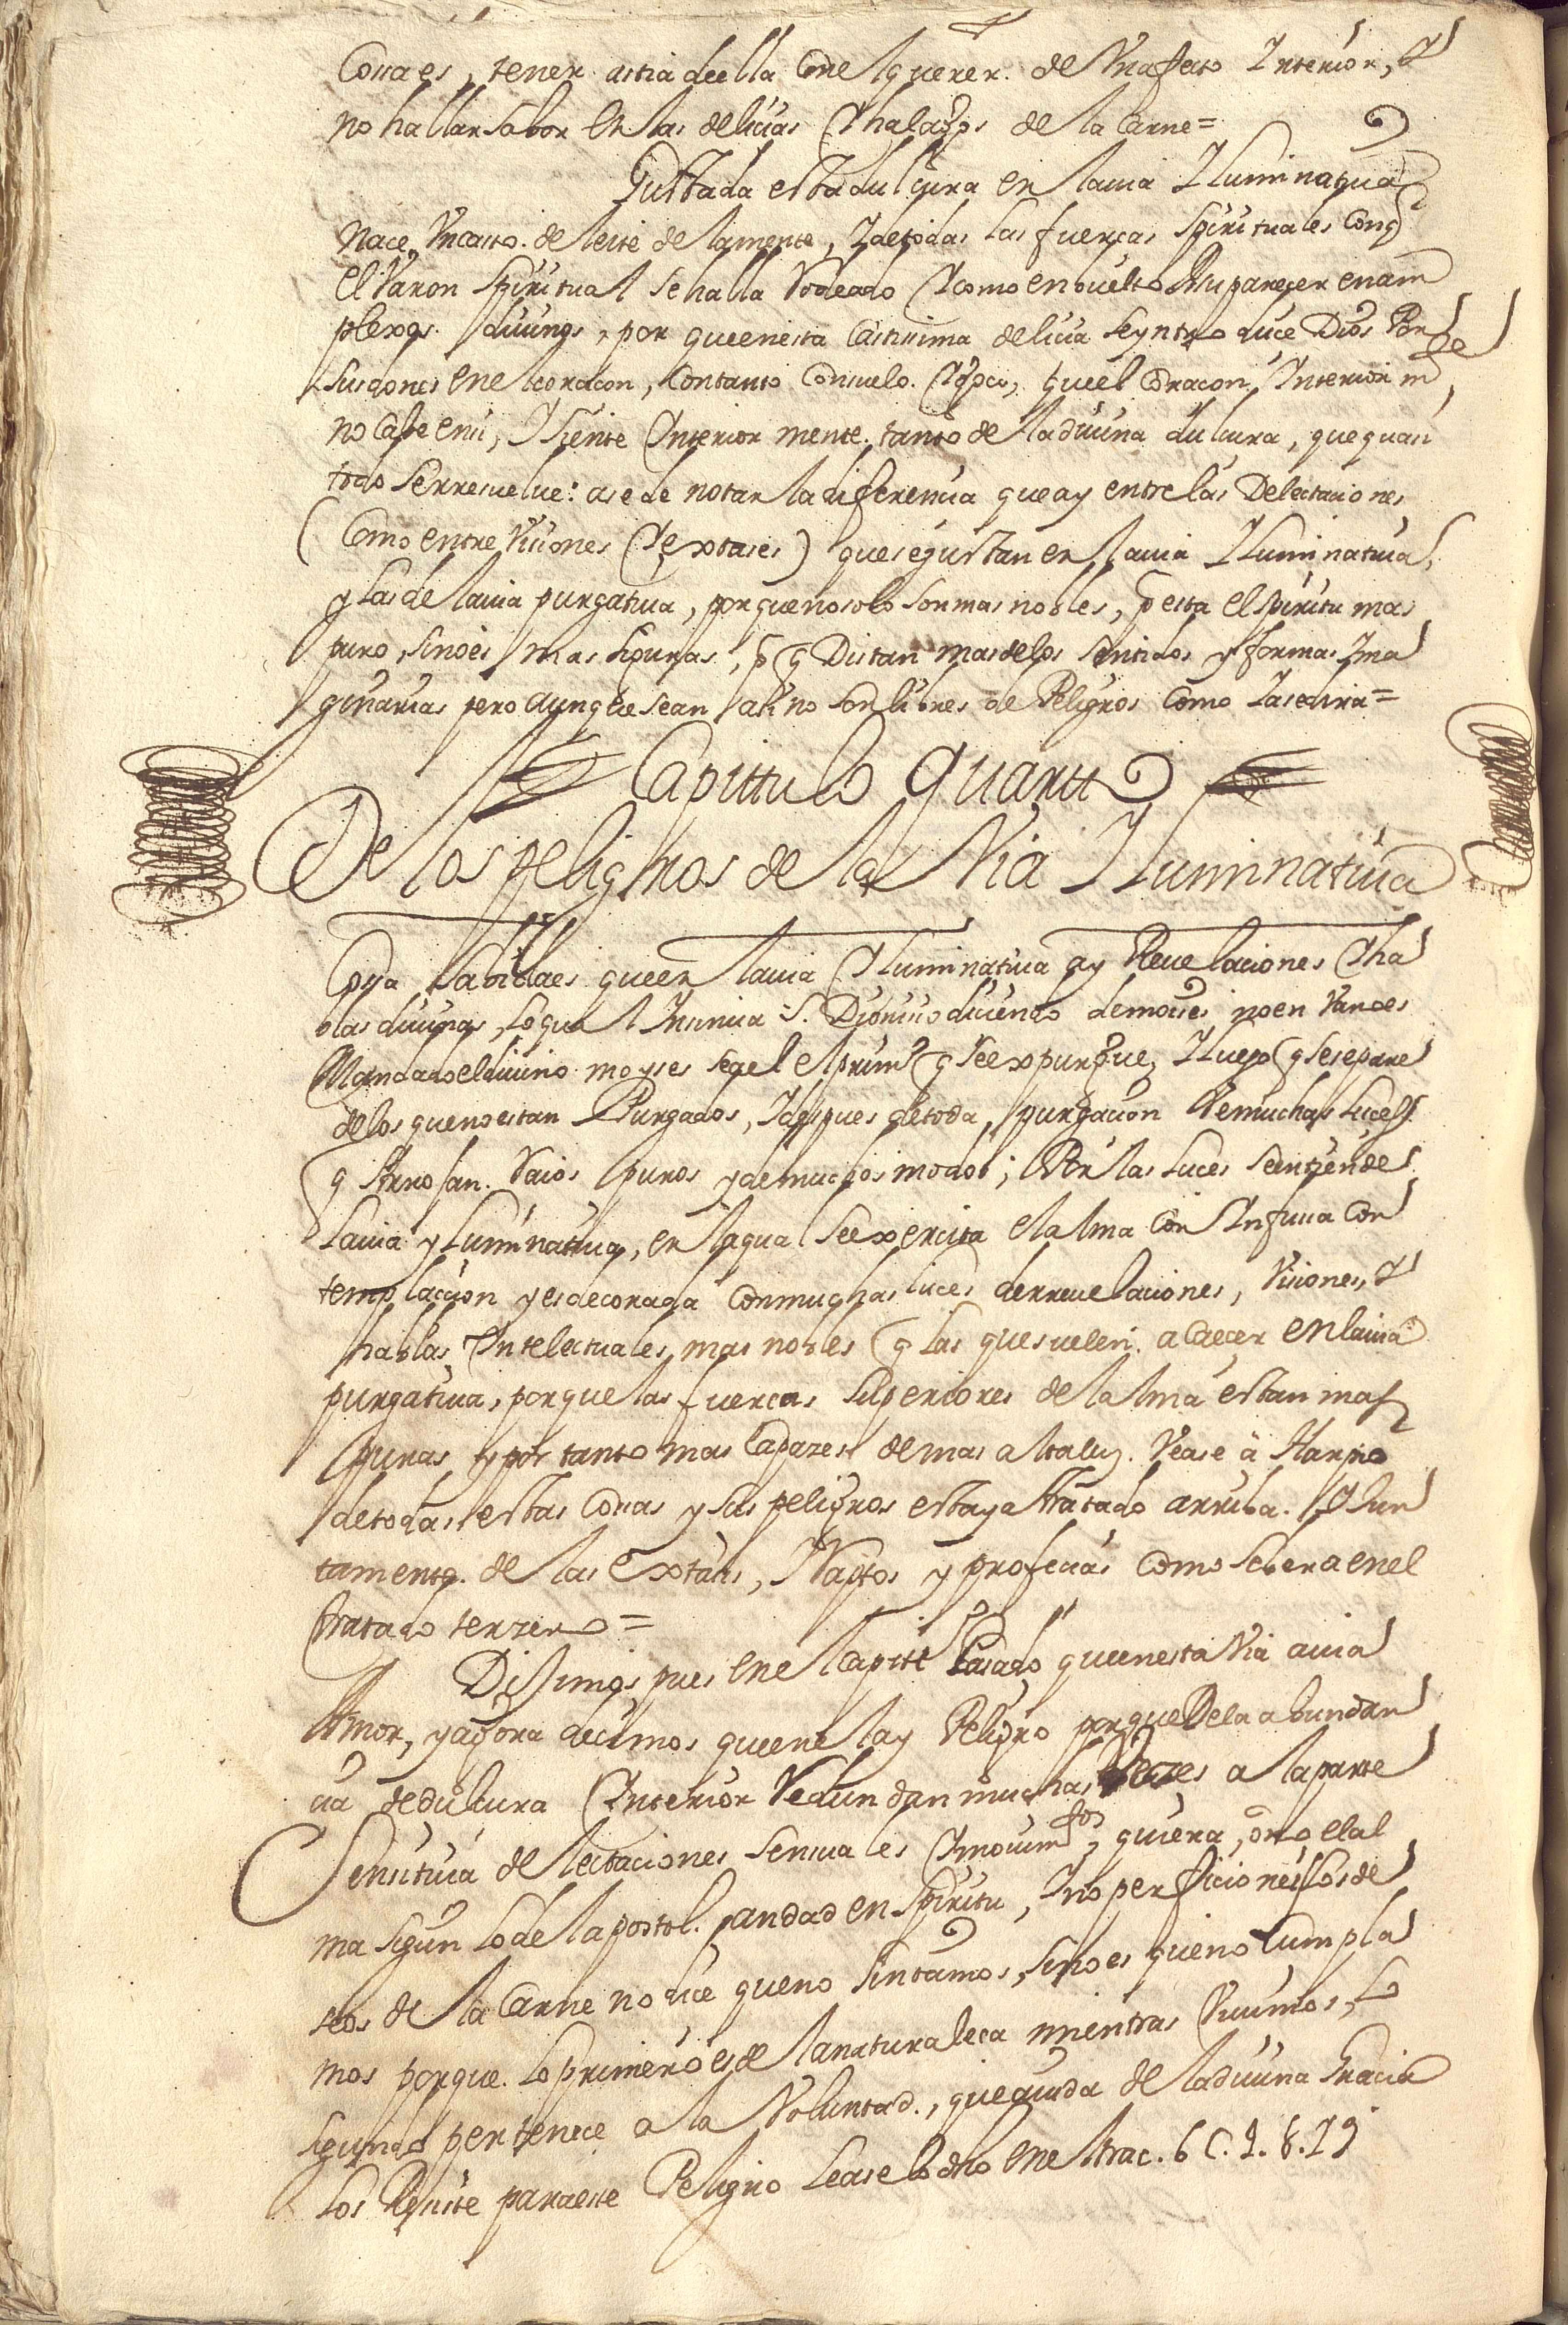 Cosa es, tener astia de ella Con el querer. de Un afecto Interior, Y
no hallar sabor En las delicias Y halagos de la Carne=
Gustada esta dulçura en la uia Iluminatiua
Nace Un casto. deleite de la mente, I de todas las fuerças Spirituales Con q
El Varon Spiritual se halla Rodeado Y como enbuelto A su parecer en am
plexos diuinos, por que en esta Castissima delicia se yntroduce Dios Por
sus dones en el coraçon, Con tanto Consuelo. que el Coraçon Interior
no Cabe en si, I siente Interior mente. tanto de la diuina dulçura, que quasi
todo se rresuelue: ase de notar la diferencia que ay entre las Delectaciones
(Como entre Visiones Y extases) que se gustan en la uia Iluminatiua,
y las de la uia purgatiua, por que no solo son mas nobles, esta el Spiritu mas
puro, sino es mas siguras, p q Distan mas de los sentidos y formas Ima
ginarias pero aunque sean asi no son libres de Peligros Como Ia se dira=
Capittulo Quartto
De los peligros de la Via Iluminatiua
Cosa Sabida es que en la uia Iluminatiua ay Reuelaciones Y ha
blas diuinas, lo qual Insinua S. Dionisio diciendo de moises, no en Vano es
Mandado el diuino moyses se que el prim.º q se expurgue, I luego q se separe
de los que no estan Purgados, I despues de toda purgacion Ve muchas Luces
q Arrojan. Raios puros y de muchos modos; Por las Luces se entiende
La uia yluminatiua, en la qual se exercita el alma Con Infusa Con
templacion y es decorada Con muchas luces de rreuelaciones, Visiones, Y
hablas Intelectuales, mas nobles q las que suelen. acaecer en la uia
purgatiua, porque las fuerças superiores de la lma estan mas
puras, y por tanto mas Capazes de mas alta luz. Vease à Harpio
de todas estas Cosas y sus peligros esta ya tratado arriba. Y Iun
tamente. de las Extasis, Raptos y profecias Como se bera en el
tratado terzero=
Diximos pues en el Capitt.º Pasado que en esta Via auia
Amor, y agora decimos que en el ay Peligro por que De la abundan
cia de dulçura Interior Redundan muchas Vezes a la parte
Sensitiua delectaciones sensuales Y mouim.tos, quiera, o no el al
ma sigun lo del apostol. pandad en Spiritu, I no perficioneis los de
seos de la Carne no dice que no sintamos, sino es que no Cumpla
mos porque. lo primero es de la naturaleça mientras Viuimos, Lo
sigundo pertenece a la Voluntad., que aiudada de la diuina Gracia
los Resiste para este Peligro Lease lo dho en el trac. 6 C. 1. 8. 19